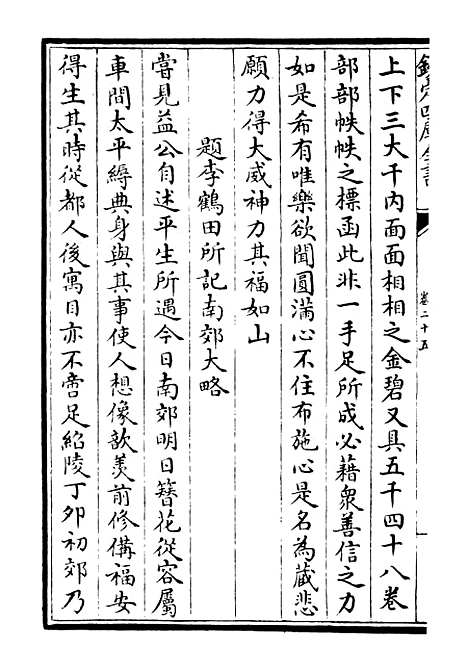 欽定四庫全書
卷二十五
上下三大千內面面相相之金碧又具五千四十八卷
部部帙帙之標函此非一手足所成必藉衆善信之力
如是希有唯樂欲聞圓滿心不住布施心是名為藏悲
願力得大威神力其福如山
題李鶴田所記南郊大略
嘗見益公自述平生所遇今日南郊明日簪花從容屬
車間太平縟典身與其事使人想像歆羡前修備福安
得生其時從都人後寓目亦不啻足紹陵丁卯初郊乃